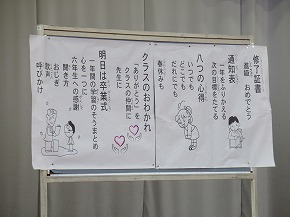 修了証書
進級 おめでとう
通知表
一年をふりかえる
次の目標をたてる
八つの心得
いつでも
どこでも
だれにでも
春休みも
クラスのおわかれ
「ありがとう」を
クラスの仲間に
先生に
明日は卒業式
一年間の学習のそうまとめ
心を一つに
六年生への感謝
聞き方
おじぎ
歌声
呼びかけ